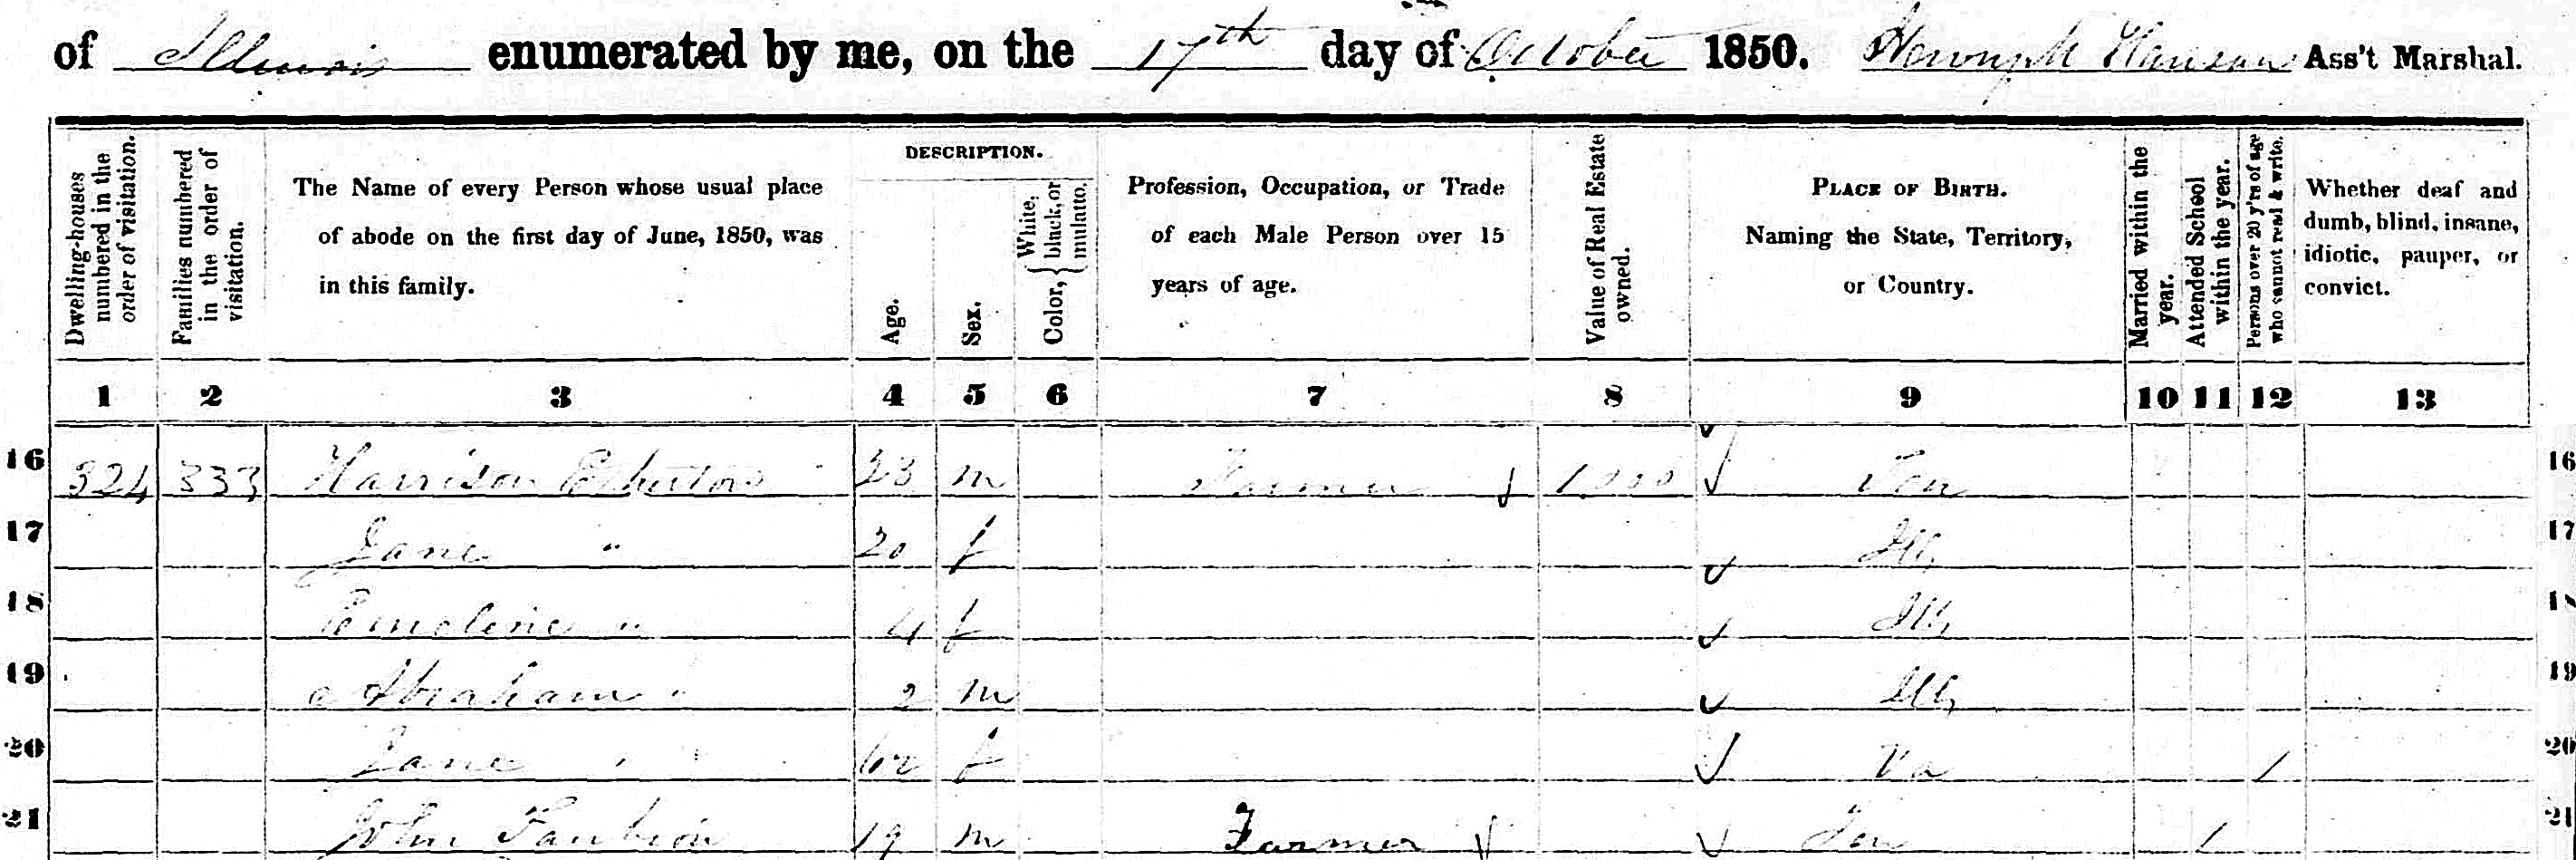 of Illinois enumerated by me, on the 17th day of October 1850. Ass't Marshal.
Dwelling-houses numbered in the order of visitation.
Families numbered in the order of visitation.
The Name of every Person whose usual place of abode on the first day of June, 1850, was in this family.
DESCRIPTION.
Age.
Sex.
Color, { White, black, or mulatto.
Profession, Occupation, or Trade of each Male Person over 15 years of age.
Value of Real Estate owned.
PLACE OF BIRTH. Naming the State, Territory, or Country.
Married within the year.
Attended School within the year.
Persons over 20 y'rs of age who cannot read & write.
Whether deaf and dumb, blind, insane, idiotic, pauper, or convict.
1 2 3 4 5 6 7 8 9 10 11 12 13
16 324 333 Harrison Etherton 23 m Farmer 1000 Ten 16
17 Jane " 20 f Ill, 17
18 Emeline " 4 f Ill, 18
19 Abraham " 2 m Ill, 19
20 Jane " f Va 1 20
21 John 19 m Farmer Ten 1 21